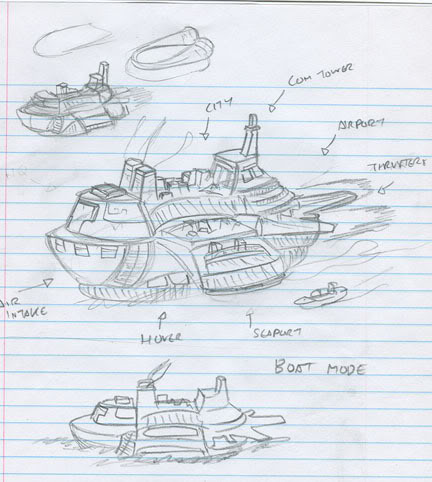 COM TOWER
CITY
AIRPORT
THRUSTERS
AIR
INTAKE
HOVER
SEAPORT
BOAT MODE